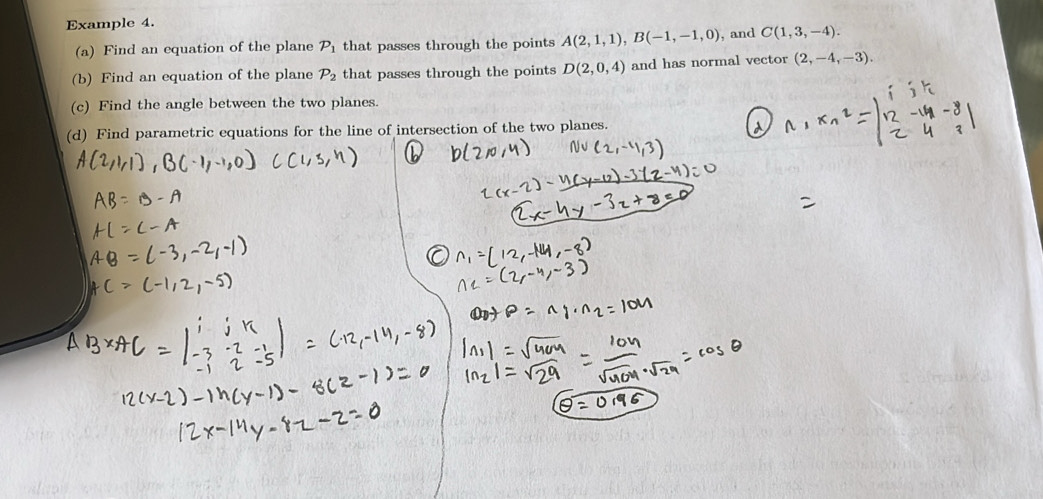 Example 4.
(a) Find an equation of the plane P₁ that passes through the points A(2, 1, 1), B(−1, −1, 0), and C(1, 3, −4).
(b) Find an equation of the plane P₂ that passes through the points D(2, 0, 4) and has normal vector (2, −4, −3).
(c) Find the angle between the two planes.
(d) Find parametric equations for the line of intersection of the two planes.
A(2,1,1), B(-1,-1,0) C(1,3,4)
AB = B - A
AC = C - A
AB = (-3, -2, -1)
AC = (-1, 2, -5)
AB × AC = | i j k
-3 -2 -1
-1 2 -5 | = (12, -14, -8)
12(x-2) - 14(y-1) - 8(z-1) = 0
12x - 14y - 8z - 2 = 0
ⓑ D(2,0,4) NV (2,-4,3)
2(x-2) - 4(y-0) - 3(z-4) = 0
2x - 4y - 3z + 8 = 0
ⓒ n₁ = (12, -14, -8)
n₂ = (2, -4, -3)
Dot P = n₁ · n₂ = 104
|n₁| = √404
|n₂| = √29
= 104 / √404 · √29 = cos θ
θ = 0.196
ⓓ n₁ × n₂ = | i j k
12 -14 -8
2 4 3 |
=